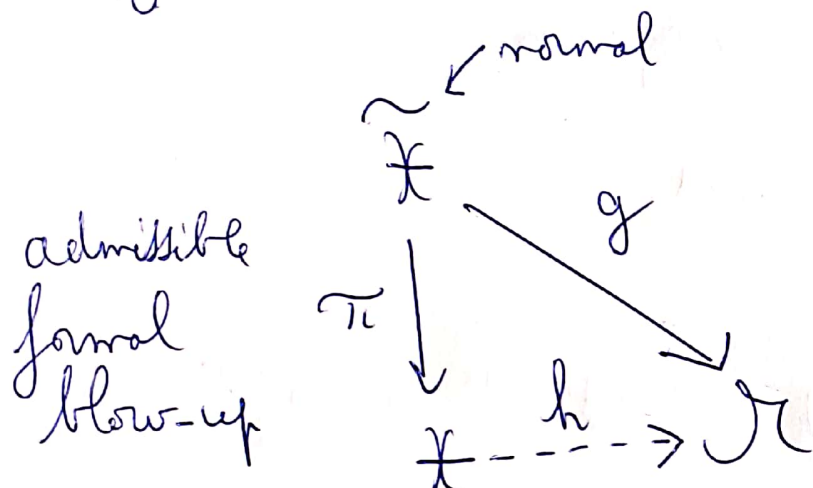 normal
~
𝔛
g
admissible
formal
blow-up
π
h
𝔛